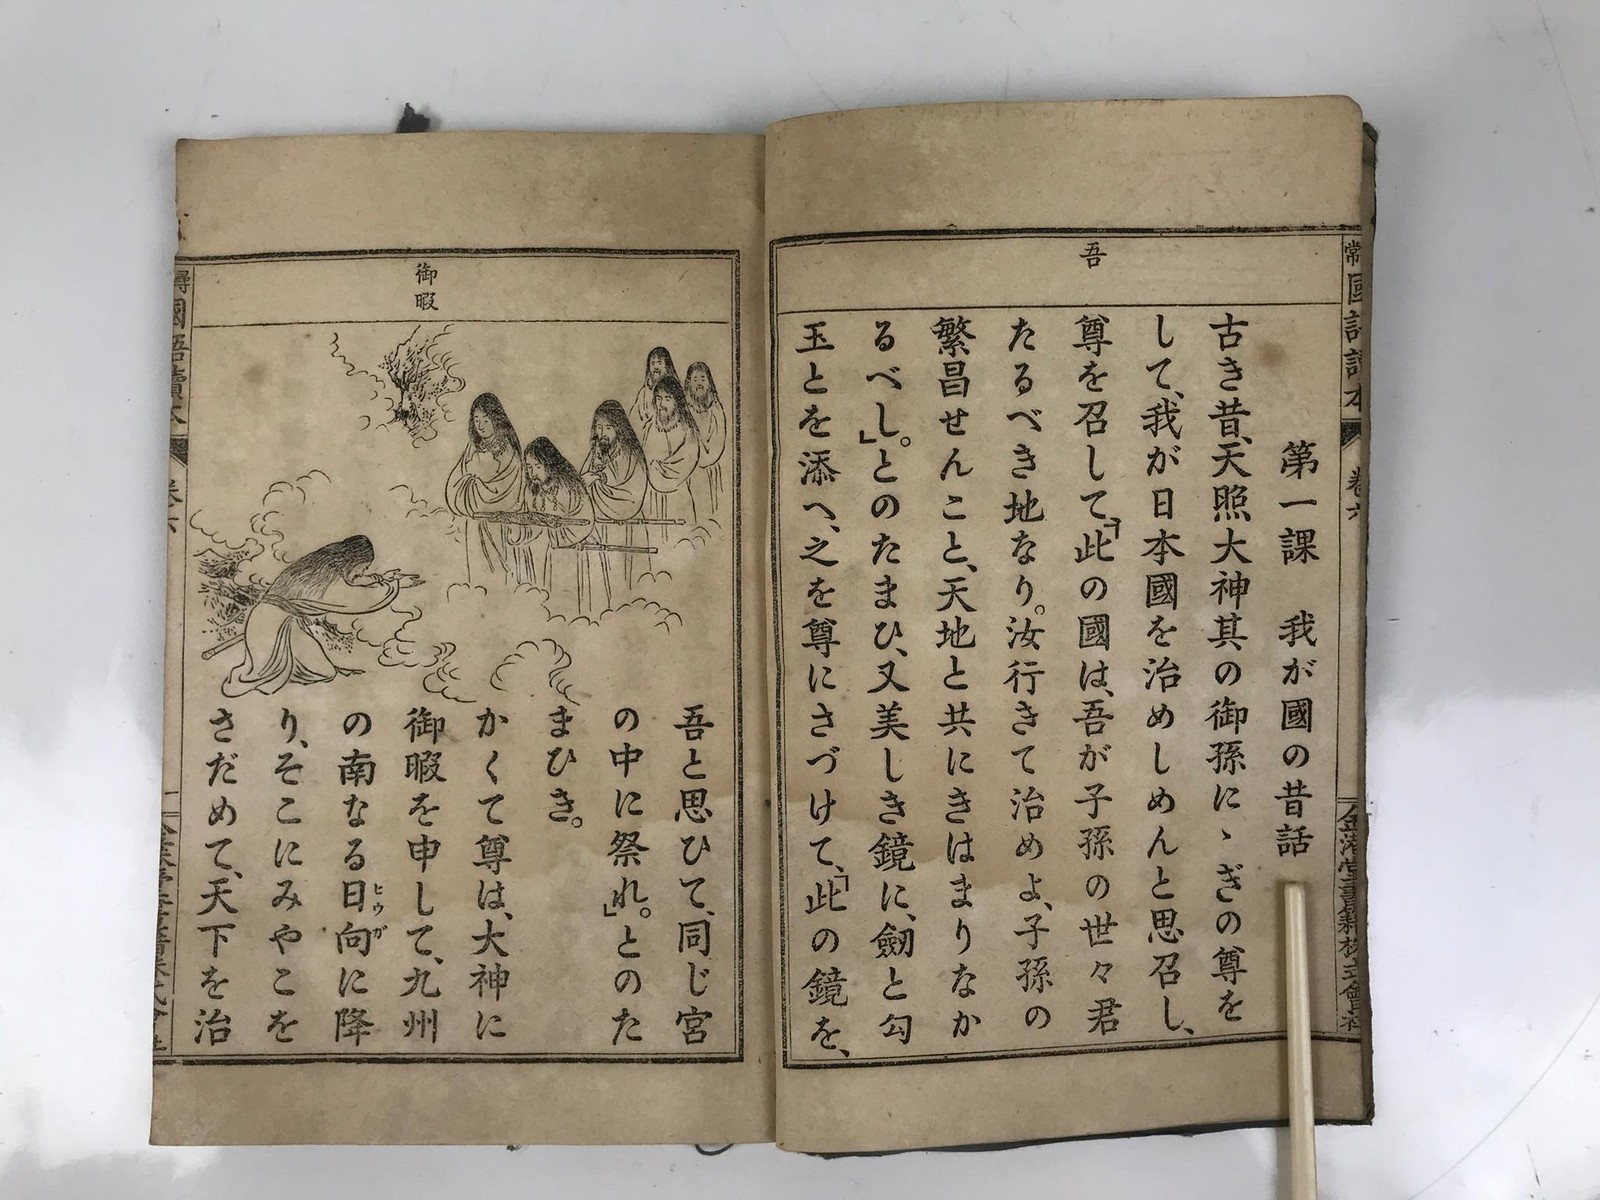 吾
第一課　我が國の昔話
古き昔、天照大神其の御孫にゝぎの尊を
して、我が日本國を治めしめんと思召し、
尊を召して、「此の國は、吾が子孫の世々君
たるべき地なり。汝行きて治めよ、子孫の
繁昌せんこと、天地と共にきはまりなか
るべし。」とのたまひ、又美しき鏡に、劒と勾
玉とを添へ、之を尊にさづけて、「此の鏡を、
御暇
吾と思ひて、同じ宮
の中に祭れ。」とのた
まひき。
かくて尊は、大神に
御暇を申して、九州
の南なる日向に降
ヒウガ
り、そこにみやこを
さだめて、天下を治
國語讀本
卷六